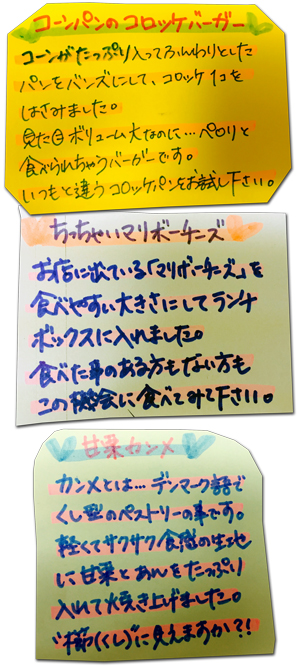 コーンパンのコロッケバーガー
コーンがたっぷり入ってふんわりとした
パンをバンズにして、コロッケ1コを
はさみました。
見た目ボリューム大なのに…ペロリと
食べられちゃうバーガーです。
いつもと違うコロッケパンをお試し下さい。
ちっちゃいマリボーチーズ
お店に出ている「マリボーチーズ」を
食べやすい大きさにしてランチ
ボックスに入れました。
食べた事のある方もない方も
この機会に食べてみて下さい。
甘栗カンメ
カンメとは…デンマーク語で
くし型のペストリーの事です。
軽くてサクサク食感の生地
に甘栗とあんをたっぷり
入れて焼き上げました。
"櫛(くし)"に見えますか?!